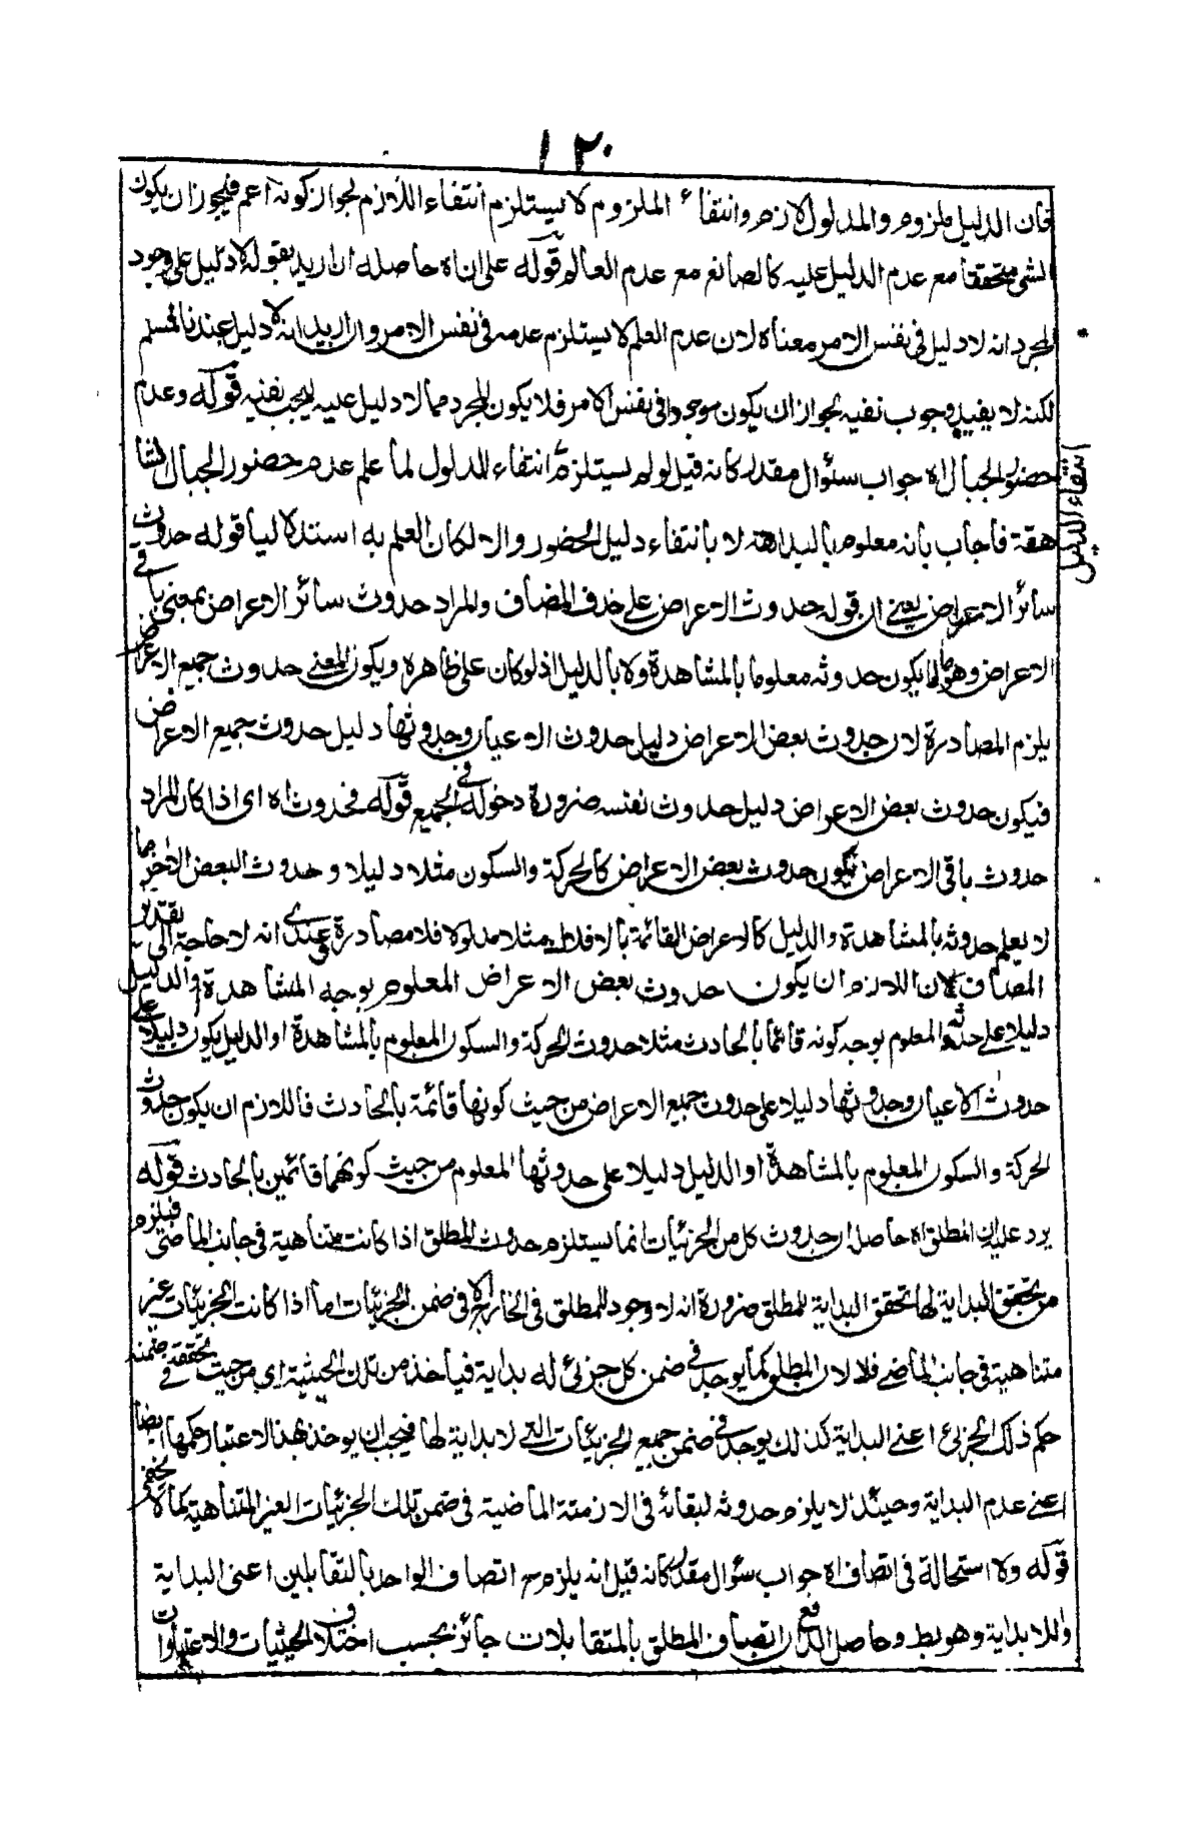 ١٢٠
فان الدليل ملزوم والمدلول لازم وانتفاء الملزوم لا يستلزم انتفاء اللازم لجواز كونه اعم فيجوز ان يكون
الشئ متحققا مع عدم الدليل عليه كالصانع مع عدم العالم قوله على ان اه حاصله ان اريد بقوله لا دليل على وجود
المجرد انه لا دليل فى نفس الامر معناه لان عدم العلم لا يستلزم عدمه فى نفس الامر وان اريد انه لا دليل عندنا فمسلم
لكنه لا يفيد وجوب نفيه لجواز ان يكون موجودا فى نفس الامر فلا يكون المجرد مما لا دليل عليه ليجب نفيه قوله وعدم
حضور الجبال اه جواب سئوال مقدر كانه قيل لو لم يستلزم انتفاء المدلول لما علم عدم حضور الجبال الشا
انتفاء الدليل
هقة فاجاب بانه معلوم بالبداهة لا بانتفاء دليل الحضور والا لكان العلم به استدلاليا قوله حدوث
سائر الاعراض يعنى ان قوله حدوث الاعراض على حذف المضاف والمراد حدوث سائر الاعراض بمعنى باقى
الاعراض وهو ما لا يكون حدوثه معلوما بالمشاهدة ولا بالدليل اذ لو كان على ظاهره ويكون المعنى حدوث جميع الاعراض
يلزم المصادرة لان حدوث بعض الاعراض دليل حدوث الاعيان وحدوثها دليل حدوث جميع الاعراض
فيكون حدوث بعض الاعراض دليل حدوث نفسه ضرورة دخوله فى الجميع قوله فحدوث اه اى اذا كان المراد
حدوث باقى الاعراض يكون حدوث بعض الاعراض كالحركة والسكون مثلا دليلا وحدوث البعض الاخر مما
لا يعلم حدوثه بالمشاهدة والدليل كالاعراض القائمة بالافلاك مثلا مدلولا فلا مصادرة عندى انه لا حاجة الى تقدير
المضاف لان اللازم ان يكون حدوث بعض الاعراض المعلوم بوجه المشاهدة او الدليل
دليلا على حدوثه المعلوم بوجه كونه قائما بالحادث مثلا حدوث الحركة والسكون المعلوم بالمشاهدة او الدليل يكون دليلا على
حدوث الاعيان وحدوثها دليلا على حدوث جميع الاعراض من حيث كونها قائمة بالحادث فاللازم ان يكون حدوث
الحركة والسكون المعلوم بالمشاهدة او الدليل دليلا على حدوثها المعلوم من حيث كونهما قائمين بالحادث قوله
يرد عليه ان المطلق اه حاصله ان حدوث كل من الجزئيات انما يستلزم حدوث المطلق اذا كانت متناهية فى جانب الماضى فيلزم
من تحقق البداية لها تحقق البداية للمطلق ضرورة انه لا وجود للمطلق فى الخارج الا فى ضمن الجزئيات اما اذا كانت الجزئيات غير
متناهية فى جانب الماضى فلا لان المطلق كما يوجد فى ضمن كل جزئى له بداية فياخذ من تلك الحيثية اى من حيث تحققه فى ضمنه
حكم ذلك الجزئى اعنى البداية كذلك يوجد فى ضمن جميع الجزئيات التى لا بداية لها فيجب ان يوخذ بهذا الاعتبار حكمها ايضا
اعنى عدم البداية وحينئذ لا يلزم حدوثه لبقائه فى الازمنة الماضية فى ضمن تلك الجزئيات الغير المتناهية كما لا يخفى
قوله ولا استحالة فى اتصاف اه جواب سئوال مقدر كانه قيل انه يلزم اتصاف الواحد بالتقابلين اعنى البداية
واللابداية وهو بط وحاصل الدفع ان اتصاف المطلق بالمتقابلات جائز بحسب اختلاف الحيثيات والاعتبارات